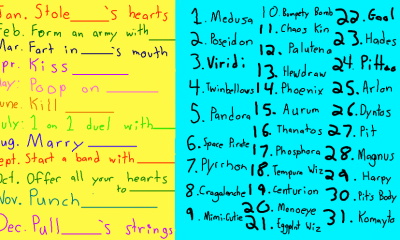 Jan. Stole____'s hearts
Feb. Form an army with____
Mar. Fart in ____'s mouth
Apr. Kiss ____
May: Poop on ____
June. Kill ____
July: 1 on 1 duel with____
Aug. Marry ____
Sept. Start a band with____
Oct. Offer all your hearts to ____
Nov. Punch____
Dec. Pull____'s strings
1. Medusa
2. Poseidon
3. Viridi
4. Twinbellows
5. Pandora
6. Space Pirate
7. Pyrrhon
8. Cragalanche
9. Mimi-Cutie
10. Bumpety Bomb
11. Chaos Kin
12. Palutena
13. Hewdraw
14. Phoenix
15. Aurum
16. Thanatos
17. Phosphora
18. Tempura Wiz
19. Centurion
20. Monoeye
21. Eggplit Wiz
22. Gaol
23. Hades
24 Pittoo
25. Arlon
26. Dyntos
27. Pit
28. Magnus
29. Harpy
30. Pit's Body
31. Komayto